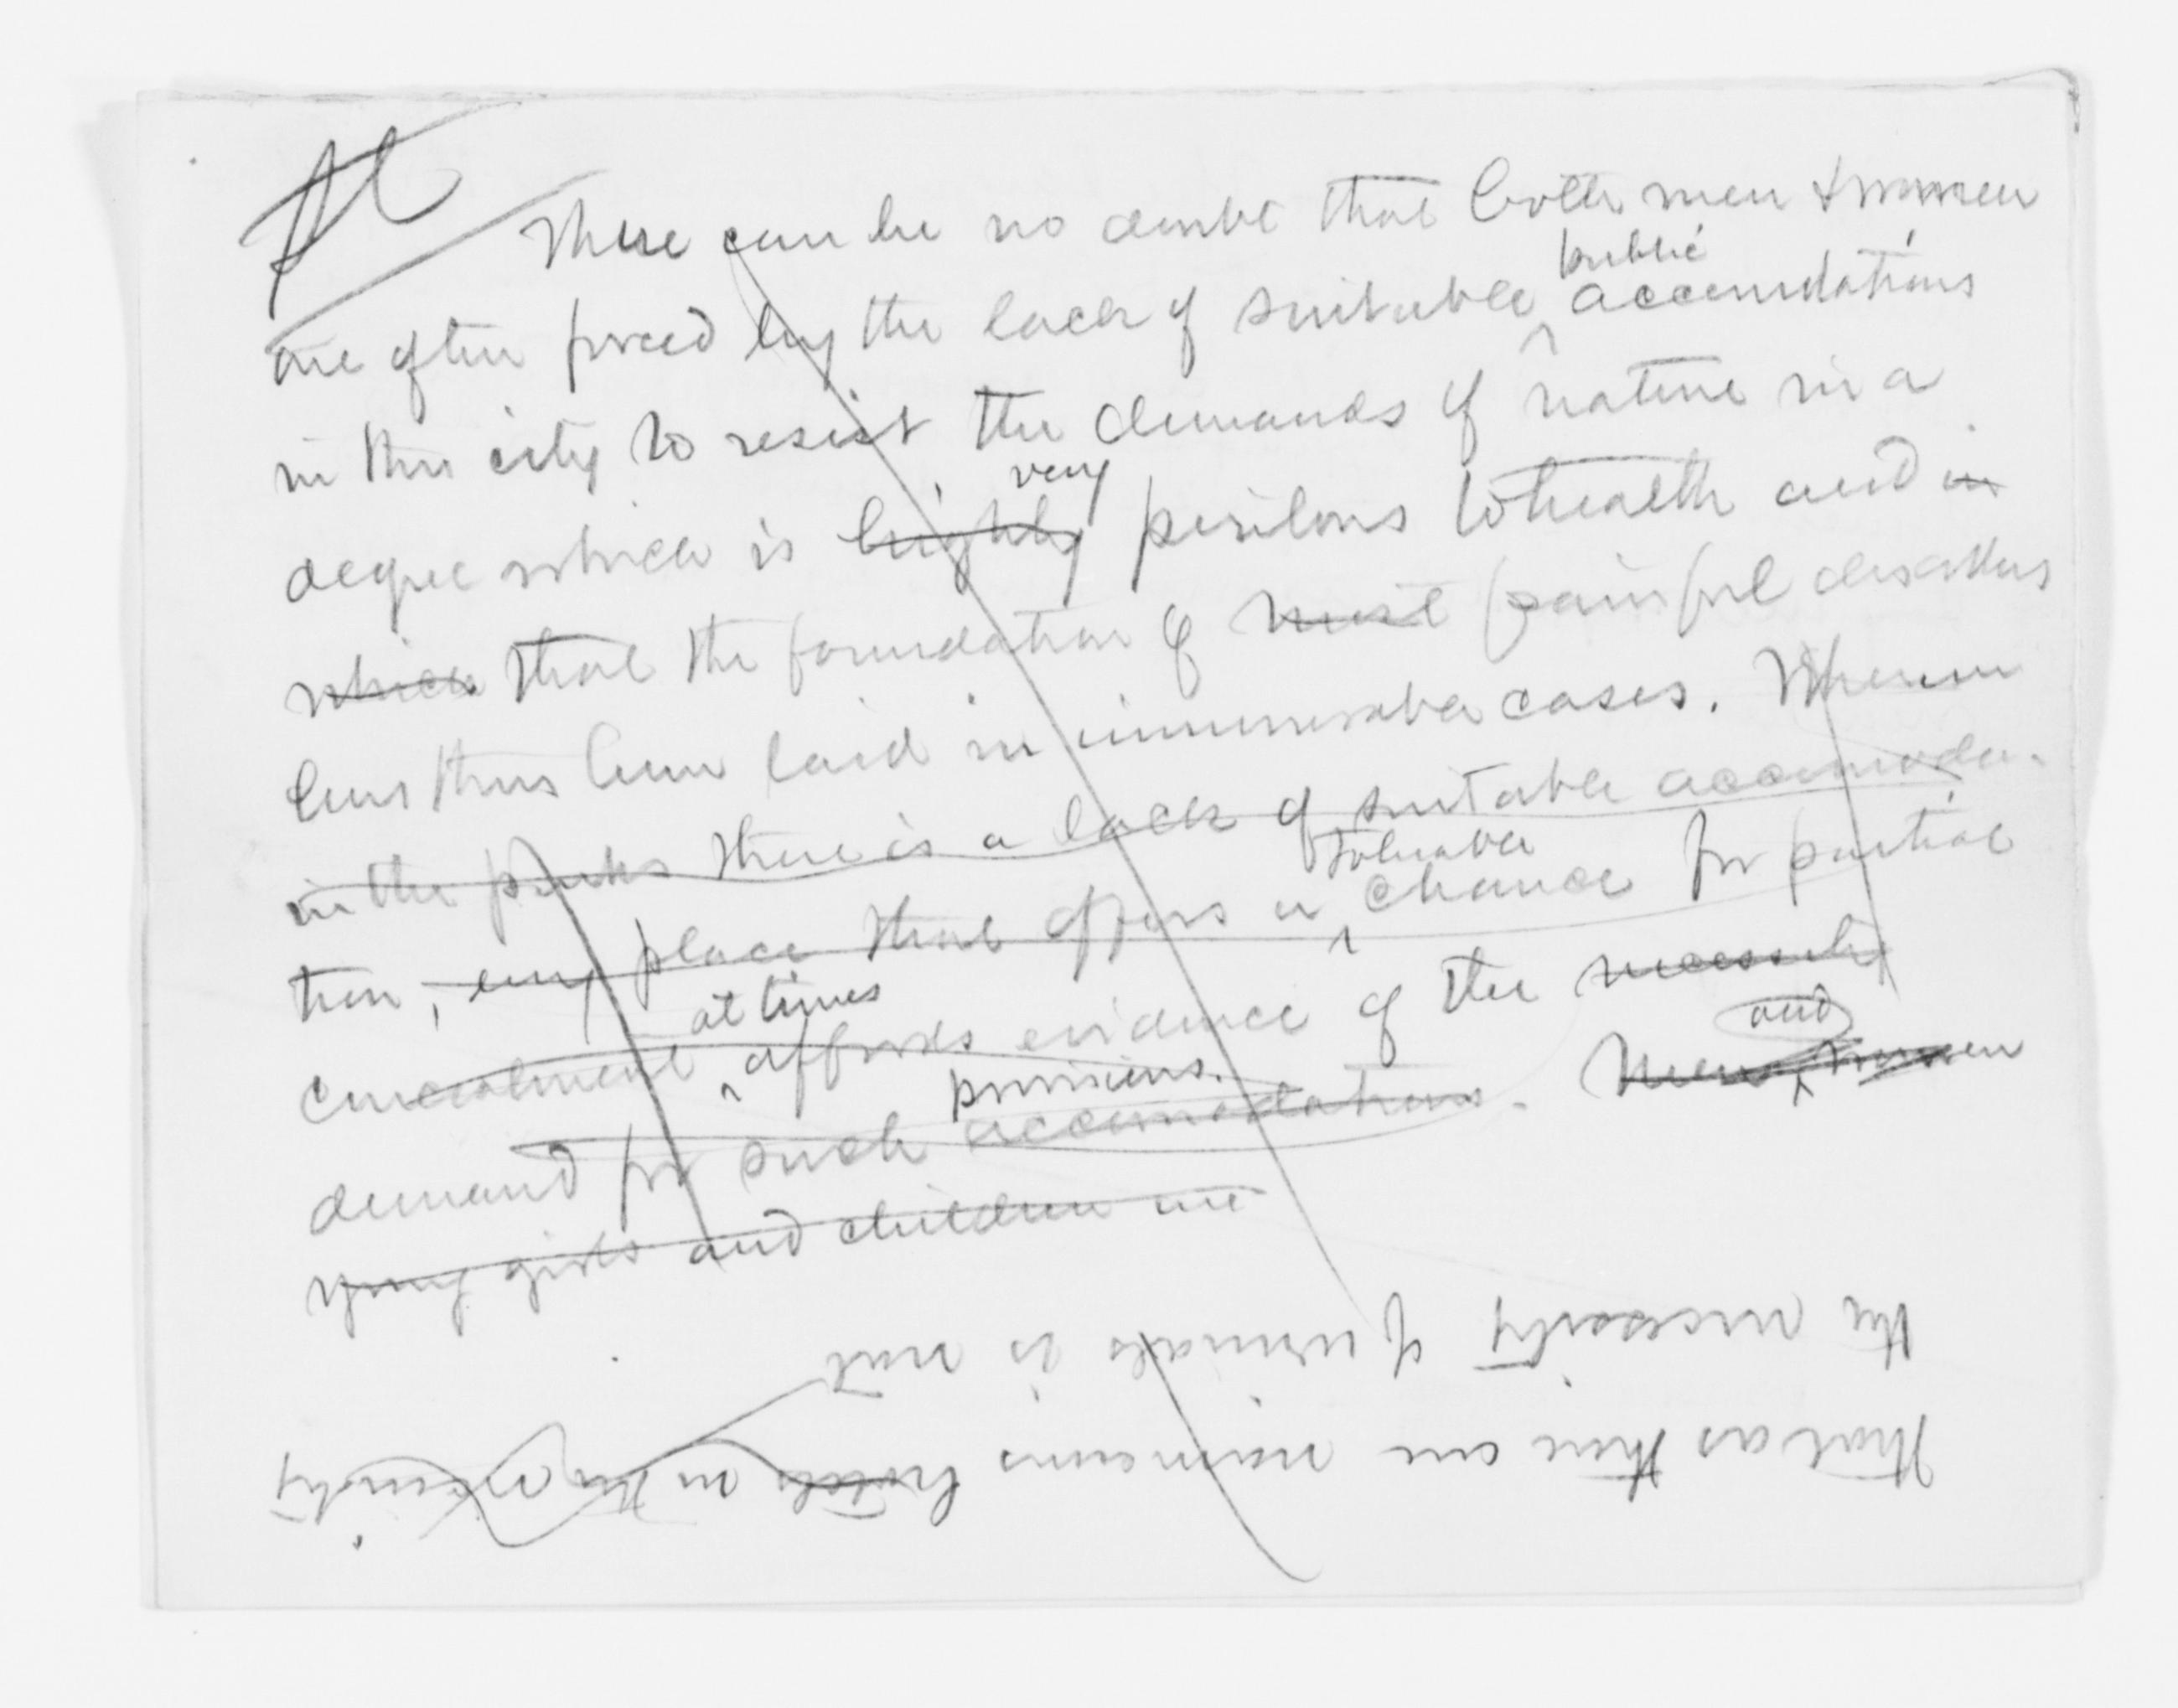 There can be no doubt that both men & women
are often forced by the lack of suitable public accomdations
in this city to resist the demands of nature in a
degree which is highly very perilous to health and in
which that the foundation of most painful diseases
has thus been laid in innumerable cases. Wherever
in the parks there is a lack of suitable accomoda-
tion, any place that offers a tolerable chance for partial
concealment at times affords evidence of the necessity
demand for such accomodations provisions. Men and women
young girls and children are
That as there are numerous hotels in the vicinity
the necessity of urinals is not